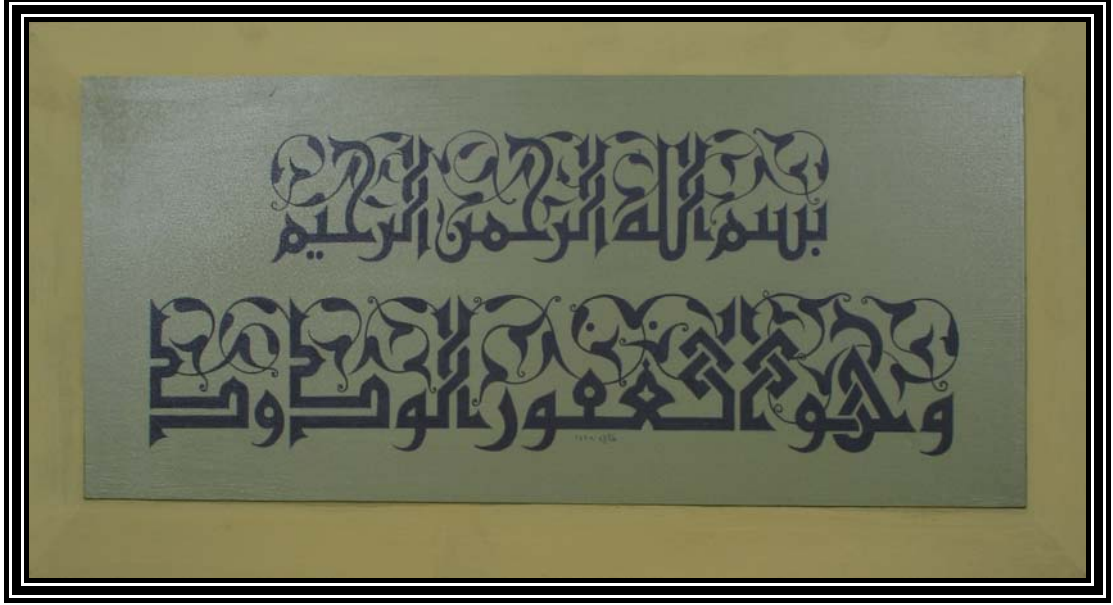 بسم الله الرحمن الرحيم
وهو الغفور الودود